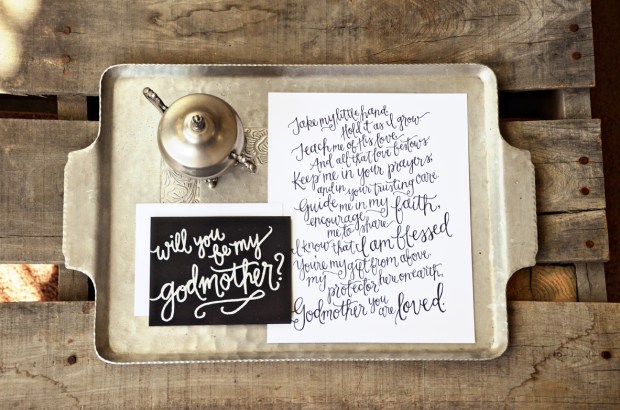 will you
be my
godmother?
Take my little hand,
Hold it as I grow
Teach me of His love
And all that love bestows
Keep me in your prayers,
and in your trusting care.
Guide me in my faith,
encourage
me to share
I know that I am blessed
You're my gift from above.
my
protector here on earth,
Godmother you are loved.